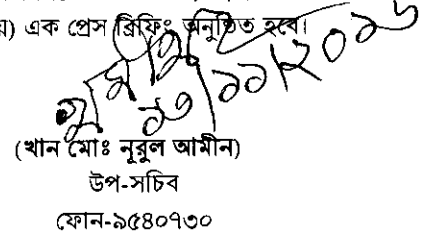 য়) এক প্রেস ব্রিফিং অনুষ্ঠিত হবে।
(খান মোঃ নূরুল আমীন)
উপ-সচিব
ফোন-৯৫৪০৭৩০